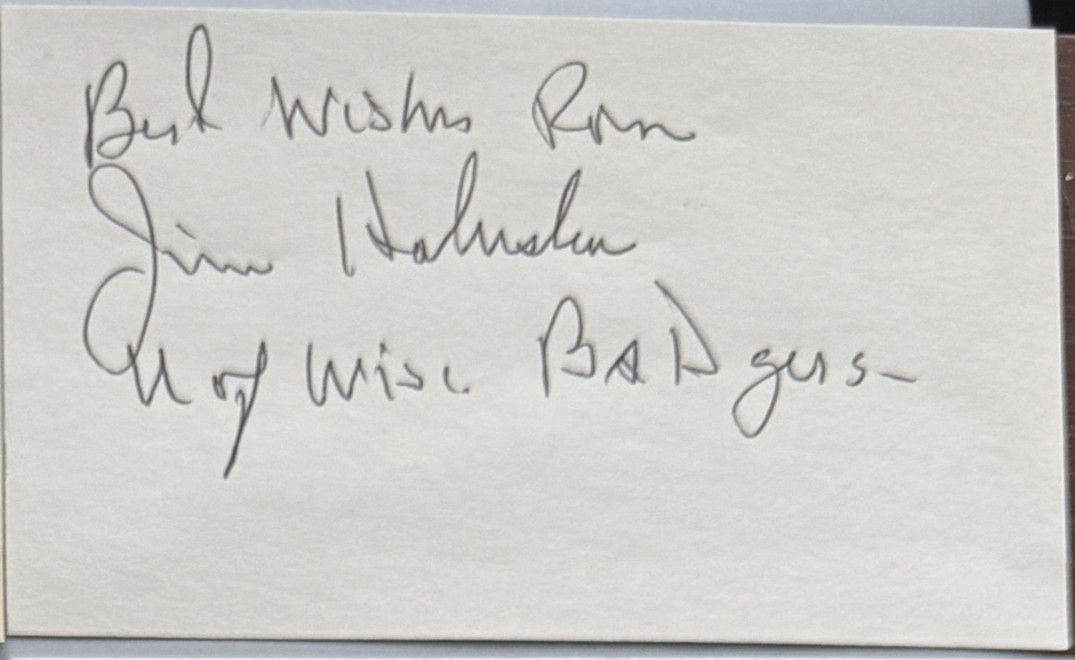 Best Wishes Ron
Jim
U of Wisc. BADgers